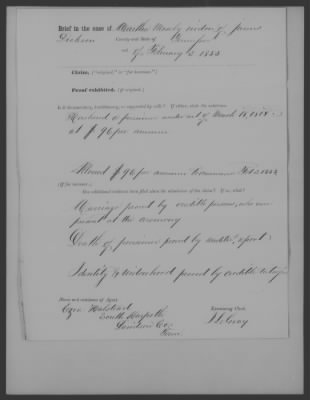 Brief in the case of Martha Neely widow of James
Dickson County and State of Tennessee
act of February 3 1853
Claim, ("original," or "for increase.")
Proof exhibited, (if original.)
Is it documentary, traditionary, or supported by rolls? If either, state the substance.
Husband a pensioner under act of March 18, 1818
at $96 per annum
Allowed $96 per annum Commence Feb 3 1853
(If for increase.)
Has additional evidence been filed since the admission of the claim? If so, what?
Marriage proved by credible persons, who were
present at the ceremony
Death of pensioner proved by audit. report
Identity & Widowhood proved by credible witnesses
Name and residence of Agent.
Ezra Halstead
South Harpeth
Davidson Co.
Tenn.
Examining Clerk.